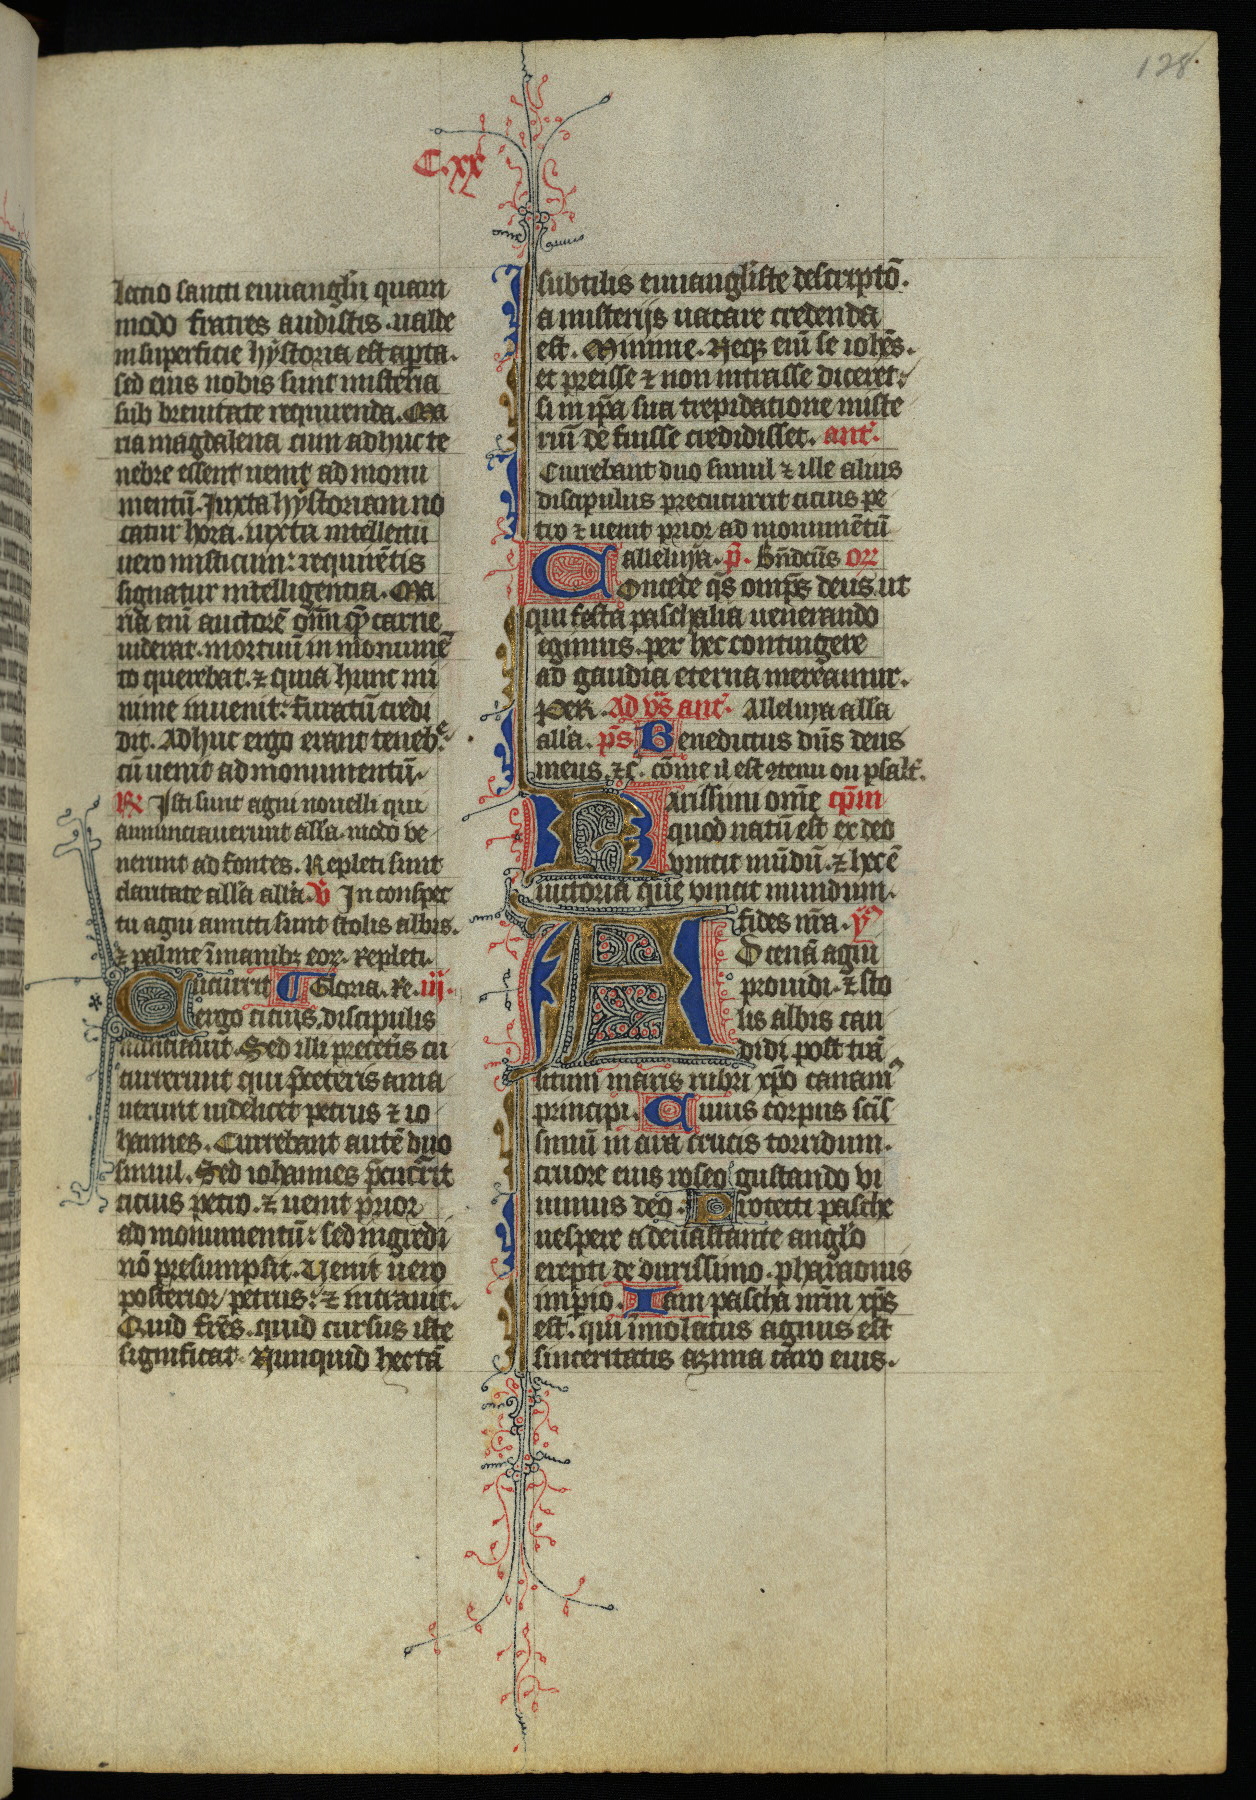 128
C.xx
lectio sancti euuanglij quam
modo fratres audistis. ualde
in superficie hystoria est aperta.
sed eius nobis sunt misteria
sub breuitate requirenda. Ma
ria magdalena cum adhuc te
nebre essent uenit ad monu
mentū. Juxta hystoriam no
tatur hora. iuxta intellectū
uero misticum: requirētis
signatur intelligentia. Ma
ria enī auctorē oīm qē carne
uiderat. mortuū in monumē
to querebat. ⁊ quia hunc mi
nime inuenit: furatū credi
dit. Adhuc ergo erant teneb̾e
cū uenit ad monumentū.
R̃ Isti sunt agni nouelli qui
annunciauerunt alla. modo ve
nerunt ad fontes. Repleti sunt
claritate alla alla. v̄ In conspec
tu agni amicti sunt stolis albis.
⁊ palme ī manibꝫ eor. Repleti.
Cucurrit Gloria. Re. iij.
ergo citius. discipulis
nunciauit. Sed illi preceteris cu
currerunt qui p̄ceteris ama
uerunt uidelicet petrus ⁊ io
hannes. Currebant autē duo
simul. Sed iohannes p̄cucurrit
citius petro. ⁊ uenit prior
ad monumentū: sed ingredi
nō presumpsit. Uenit uero
posterior petrus: ⁊ intrauit.
Quid frēs. quid cursus iste
significat. Nunquid hec tā
subtilis euuangliste descriptō.
a misterijs uacare credenda
est. Minime. Neqꝫ enī se iohēs.
et preisse ⁊ non intrasse diceret:
si in ip̄a sua trepidatione miste
riū de fuisse credidisset. ant̄.
Currebant duo simul ⁊ ille alius
discipulus precucurrit citius pe
tro ⁊ uenit prior ad monumētū
alleluya. p̄. Bn̄dictus or̄
Concede q̄s omp̄s deus ut
qui festa paschalia uenerando
egimus. per hec contingere
ad gaudia eterna mereamur.
Per. Ad v̄s ant̄. Alleluya alla
alla. ps̄ Benedictus dn̄s deus
meus. ⁊c. cōme il est ↄtenu ou psalt̄.
Karissimi omē cp̄m
quod natū est ex deo
vincit mūdū. ⁊ hec ē
uictoria que vincit mundum.
fides nr̄a. ẏ
Ad cenā agni
prouidi. ⁊ sto
lis albis can
didi post trā
situm maris rubri xp̄o canam̄
principi. Cuius corpus sc̄is
simū in ara crucis torridum.
cruore eius roseo gustando vi
uimus deo. Protecti pasche
uespere a deuastante anglo
erepti de durissimo. pharaonis
impio. Iam pascha nrm̄ xp̄s
est. qui īmolatus agnus est
sinceritatis azima caro eius.